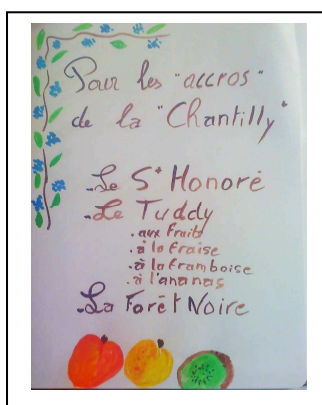 Pour les "accros"
de la "Chantilly"
-Le St Honoré
-Le Tuddy
. aux fruits
. à la fraise
. à la framboise
. à l'ananas
-La Forêt Noire